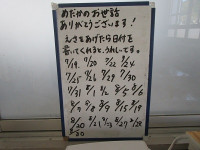 めだかのお世話
ありがとうございます!
えさをあげたら日付を
書いてくれると、うれしいです。
7/19. 7/20 7/22 7/24
7/25 7/26 7/29 7/30
7/31 8/1 8/2 8/5 8/6
8/7 8/8 8/9 8/15 8/19
8/20 8/21 8/23 8/27 8/28
8/30